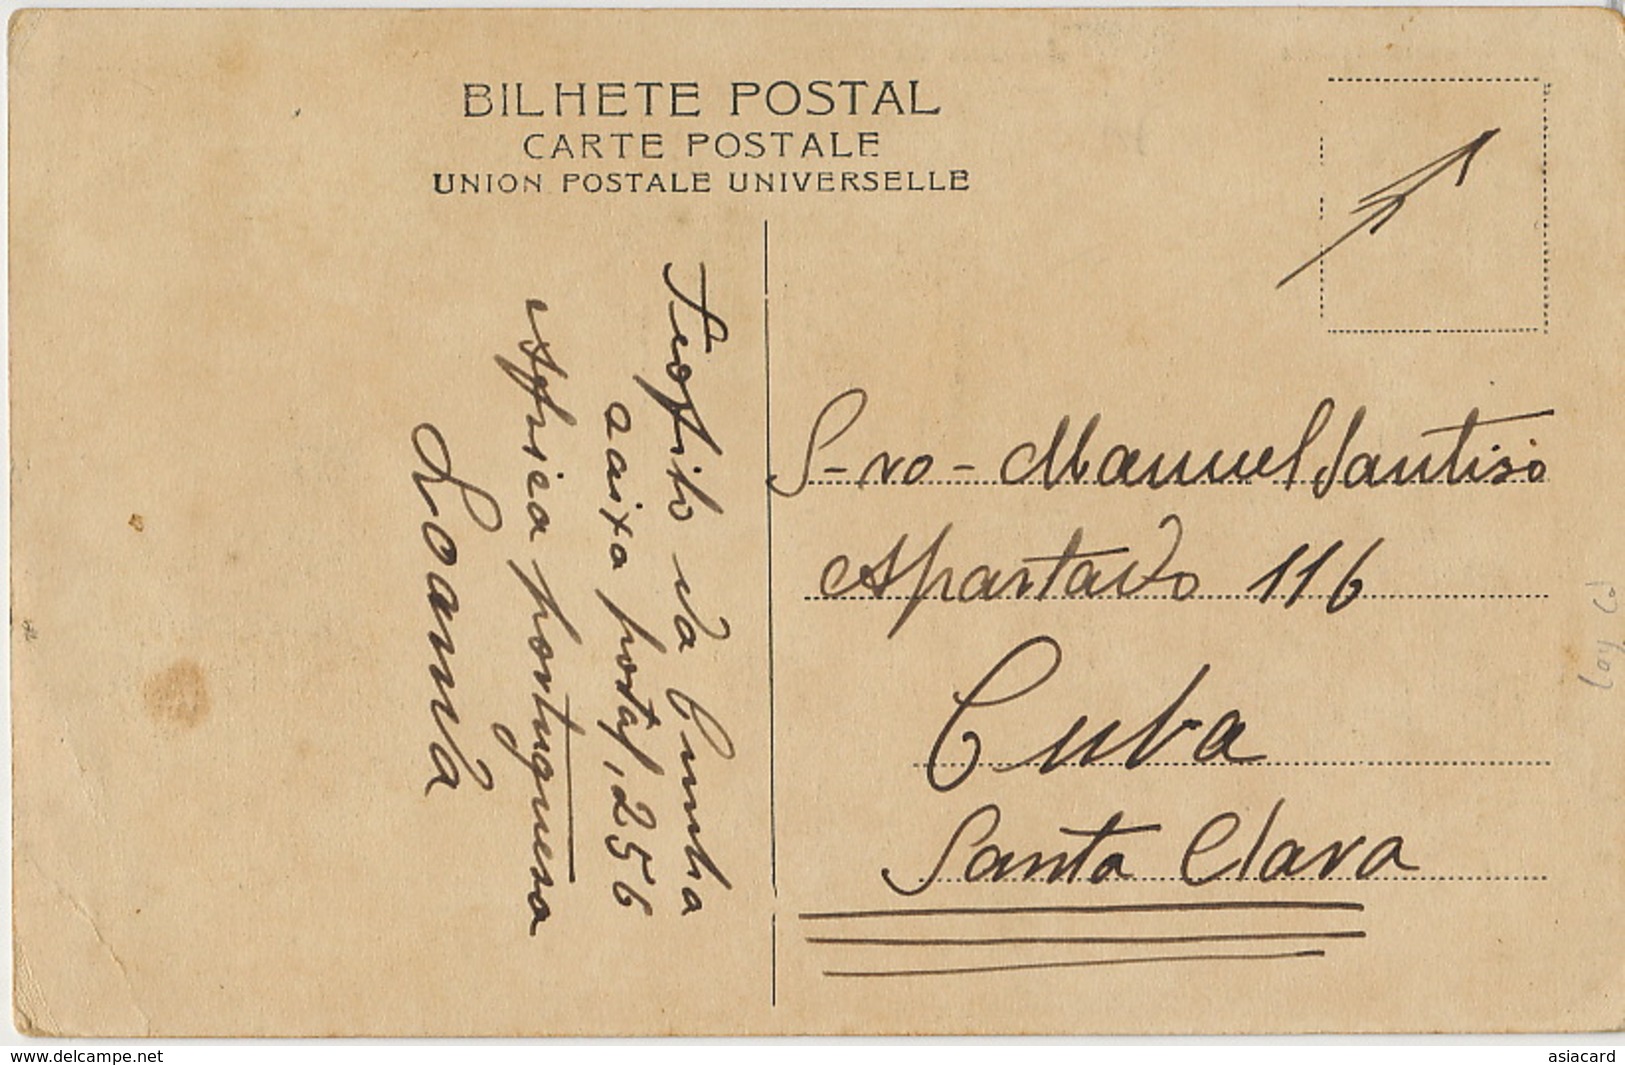 BILHETE POSTAL
CARTE POSTALE
UNION POSTALE UNIVERSELLE
Teofilo da Cunha
caixa postal, 256
Africa portuguesa
Loanda
S-ro- Manuel Santiso
Apartado 116
Cuba
Santa Clara
www.delcampe.net
asiacard